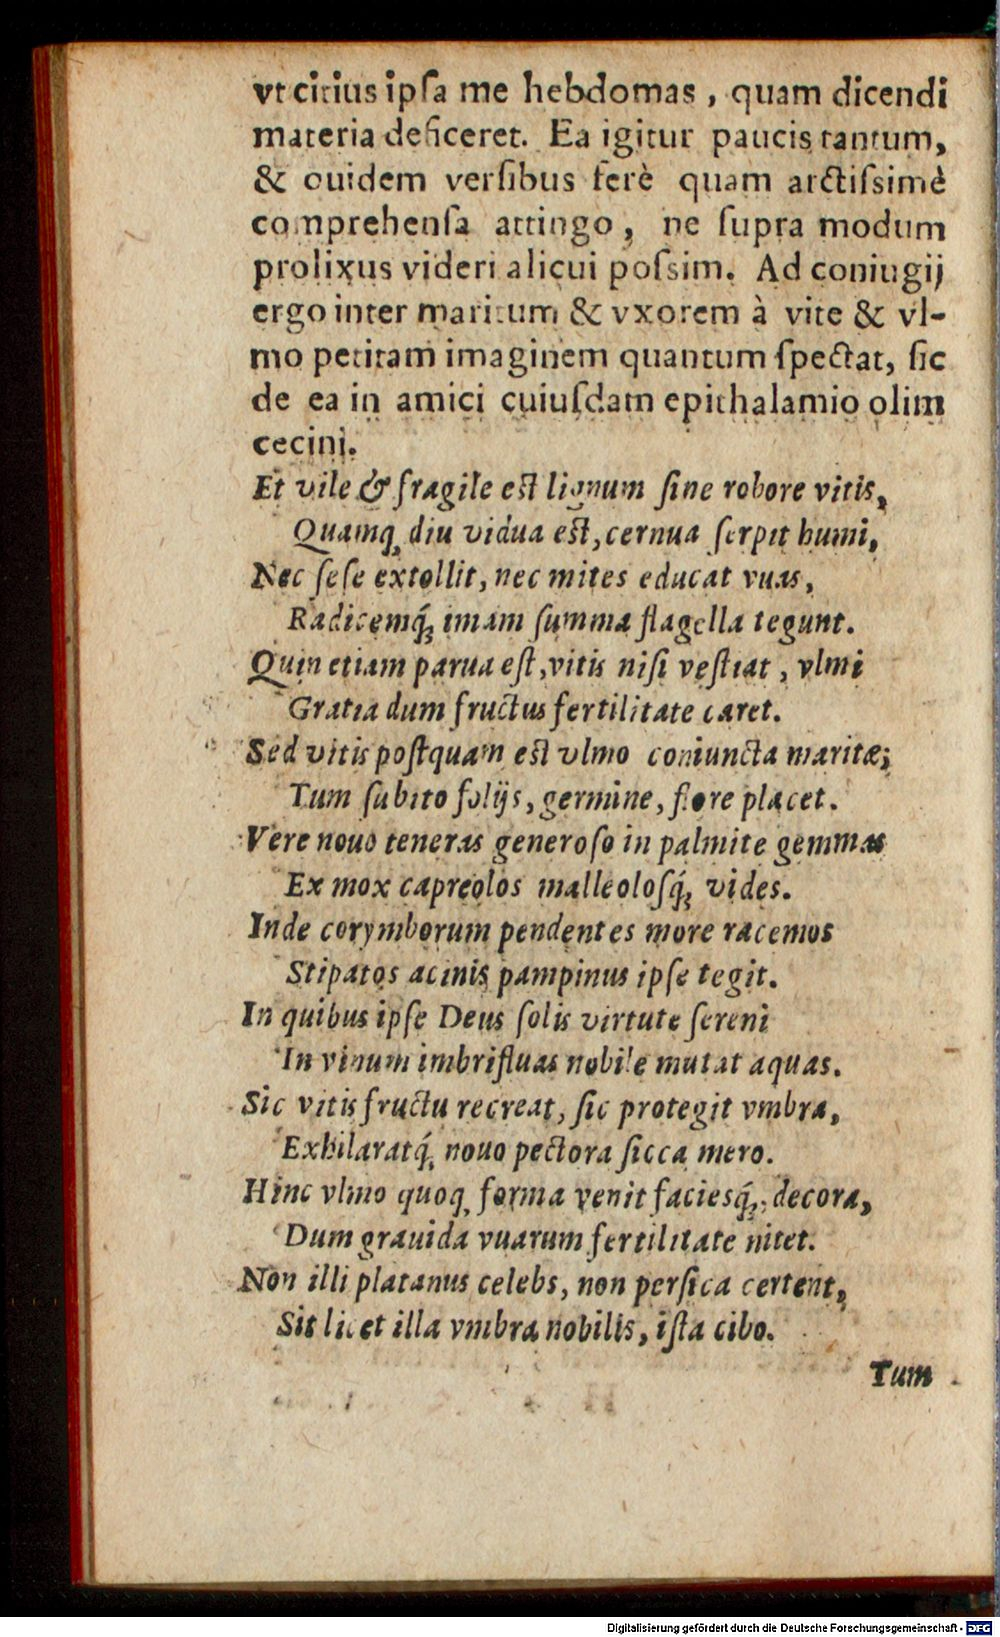 vt citius ipſa me hebdomas, quam dicendi
materia deficeret. Ea igitur paucis tantum,
& quidem verſibus ferè quam arctiſsimè
comprehenſa attingo, ne ſupra modum
prolixus videri alicui poſsim. Ad coniugij
ergo inter maritum & vxorem à vite & vl-
mo petitam imaginem quantum ſpectat, ſic
de ea in amici cuiuſdam epithalamio olim
cecini.
Et vile & fragile est lignum ſine robore vitis,
Quamq; diu vidua est, cernua ſerpit humi,
Nec ſeſe extollit, nec mites educat vuas,
Radicemq́; imam ſumma flagella tegunt.
Quin etiam parua eſt, vitis niſi veſtiat, vlmi
Gratia dum fructus fertilitate caret.
Sed vitis poſtquam est vlmo coniuncta maritæ;
Tum ſubito folijs, germine, flore placet.
Vere nouo teneras generoſo in palmite gemmas
Ex mox capreolos malleoloſq́; vides.
Inde corymborum pendentes more racemos
Stipatos acinis pampinus ipſe tegit.
In quibus ipſe Deus ſolis virtute ſereni
In vinum imbrifluas nobile mutat aquas.
Sic vitis fructu recreat, ſic protegit vmbra,
Exhilaratq́; nouo pectora ſicca mero.
Hinc vlmo quoq; forma venit facieſq́; decora,
Dum grauida vuarum fertilitate nitet.
Non illi platanus celebs, non perſica certent,
Sit licet illa vmbra nobilis, iſta cibo.
Tum
Digitalisierung gefördert durch die Deutsche Forschungsgemeinschaft - DFG